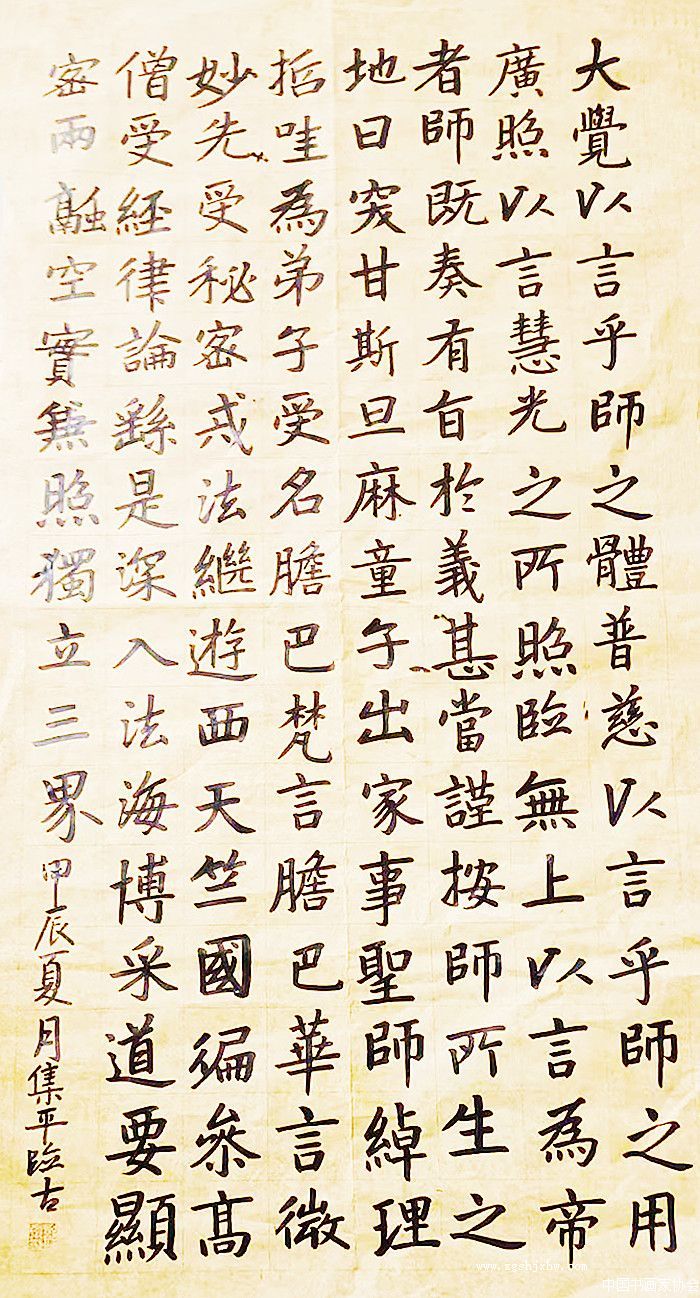 大覺以言乎師之體普慈以言乎師之用
廣照以言慧光之所照臨無上以言為帝
者師既奏有旨於義甚當謹按師所生之
地曰突甘斯旦麻童子出家事聖師綽理
哲哇為弟子受名膽巴梵言膽巴華言微
妙先受秘密戒法繼遊西天竺國徧叅高
僧受經律論繇是深入法海博采道要顯
密兩融空實無照獨立三界 甲辰夏月集平臨古
中国书画家协会